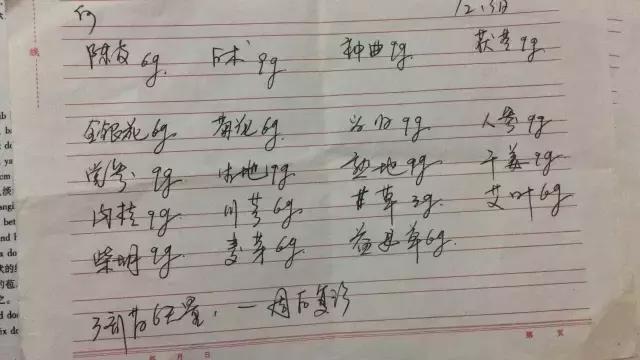 陈皮 6g. 白术 9g 神曲 9g 茯苓 9g
线
金银花 6g 菊花 6g. 当归 9g 人参 9g
党参. 9g 生地 9g 熟地 9g 干姜 9g
肉桂 9g 川芎 6g 甘草 3g 艾叶 6g
柴胡 9g 麦芽 6g 益母草 6g.
3副药6天量，一周后复诊
年 月 日 第 页